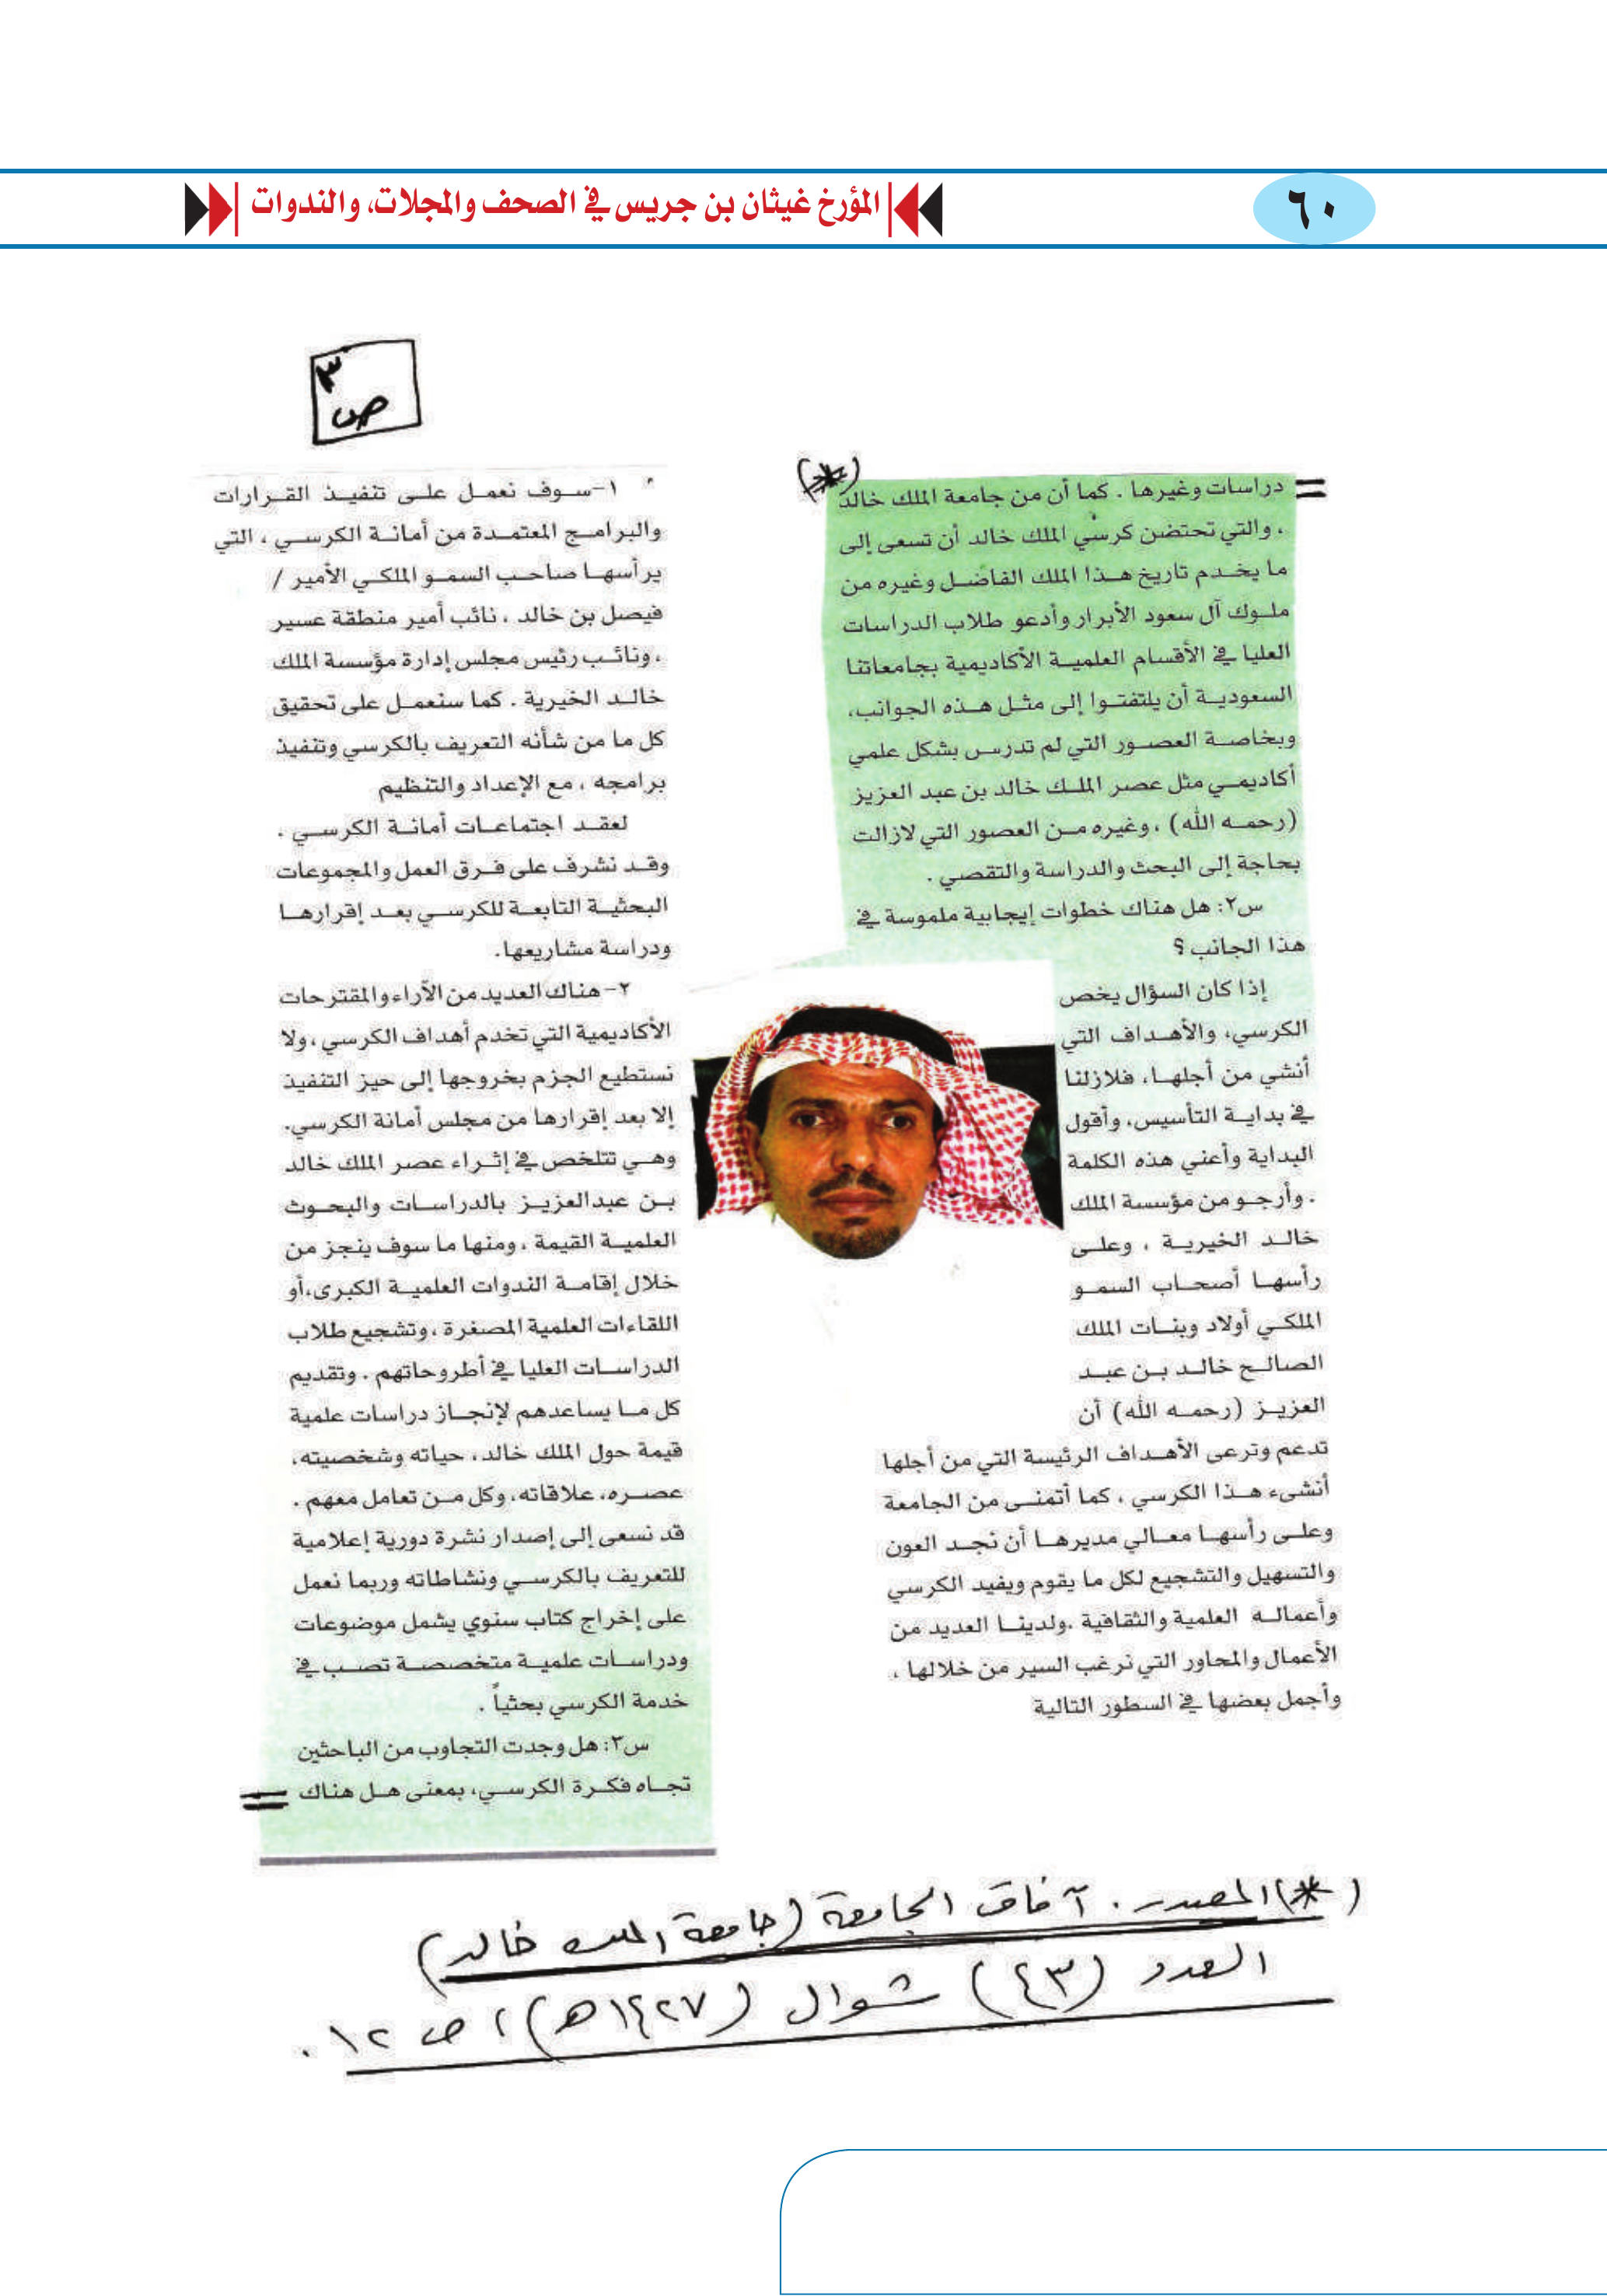 ٦٠
المؤرخ غيثان بن جريس في الصحف والمجلات، والندوات
ص ٣
(*)
= دراسات وغيرها . كما أن من جامعة الملك خالد
، والتي تحتضن كرسي الملك خالد أن تسعى إلى
ما يخدم تاريخ هذا الملك الفاضل وغيره من
ملوك آل سعود الأبرار وأدعو طلاب الدراسات
العليا في الأقسام العلمية الأكاديمية بجامعاتنا
السعودية أن يلتفتوا إلى مثل هذه الجوانب،
وبخاصة العصور التي لم تدرس بشكل علمي
أكاديمي مثل عصر الملك خالد بن عبد العزيز
(رحمه الله) ، وغيره من العصور التي لازالت
بحاجة إلى البحث والدراسة والتقصي .
س٢: هل هناك خطوات إيجابية ملموسة في
هذا الجانب ؟
إذا كان السؤال يخص
الكرسي، والأهداف التي
أنشي من أجلها، فلازلنا
في بداية التأسيس، وأقول
البداية وأعني هذه الكلمة
. وأرجو من مؤسسة الملك
خالد الخيرية ، وعلى
رأسها أصحاب السمو
الملكي أولاد وبنات الملك
الصالح خالد بن عبد
العزيز (رحمه الله) أن
تدعم وترعى الأهداف الرئيسة التي من أجلها
أنشىء هذا الكرسي ، كما أتمنى من الجامعة
وعلى رأسها معالي مديرها أن نجد العون
والتسهيل والتشجيع لكل ما يقوم ويفيد الكرسي
وأعماله العلمية والثقافية .ولدينا العديد من
الأعمال والمحاور التي نرغب السير من خلالها ،
وأجمل بعضها في السطور التالية
١-سوف نعمل على تنفيذ القرارات
والبرامج المعتمدة من أمانة الكرسي ، التي
يرأسها صاحب السمو الملكي الأمير /
فيصل بن خالد ، نائب أمير منطقة عسير
، ونائب رئيس مجلس إدارة مؤسسة الملك
خالد الخيرية . كما سنعمل على تحقيق
كل ما من شأنه التعريف بالكرسي وتنفيذ
برامجه ، مع الإعداد والتنظيم
لعقد اجتماعات أمانة الكرسي .
وقد نشرف على فرق العمل والمجموعات
البحثية التابعة للكرسي بعد إقرارها
ودراسة مشاريعها.
٢-هناك العديد من الآراء والمقترحات
الأكاديمية التي تخدم أهداف الكرسي ، ولا
نستطيع الجزم بخروجها إلى حيز التنفيذ
إلا بعد إقرارها من مجلس أمانة الكرسي.
وهي تتلخص في إثراء عصر الملك خالد
بن عبدالعزيز بالدراسات والبحوث
العلمية القيمة ، ومنها ما سوف ينجز من
خلال إقامة الندوات العلمية الكبرى،أو
اللقاءات العلمية المصغرة ، وتشجيع طلاب
الدراسات العليا في أطروحاتهم . وتقديم
كل ما يساعدهم لإنجاز دراسات علمية
قيمة حول الملك خالد، حياته وشخصيته،
عصره، علاقاته، وكل من تعامل معهم .
قد نسعى إلى إصدار نشرة دورية إعلامية
للتعريف بالكرسي ونشاطاته وربما نعمل
على إخراج كتاب سنوي يشمل موضوعات
ودراسات علمية متخصصة تصب في
خدمة الكرسي بحثياً .
س٣: هل وجدت التجاوب من الباحثين
تجاه فكرة الكرسي، بمعنى هل هناك =
(*) المصدر . آفاق الجامعة (جامعة الملك خالد)
العدد (٤٣) شوال (١٤٢٧هـ) ، ص ١٢ .